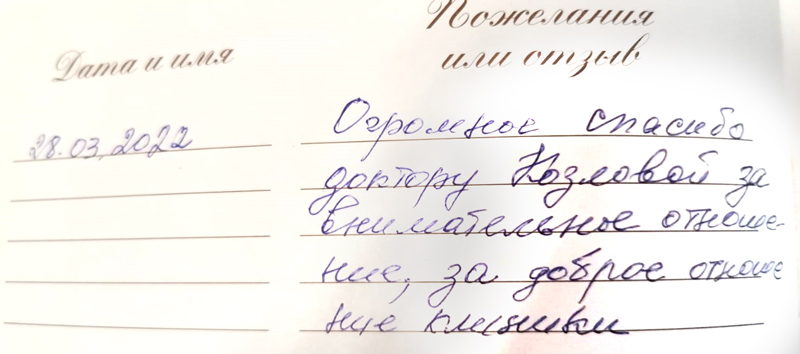 Пожелания
Дата и имя
или отзыв
28.03.2022
Огромное спасибо
доктору Козловой за
внимательное отноше-
ние, за доброе отноше
ние клиники